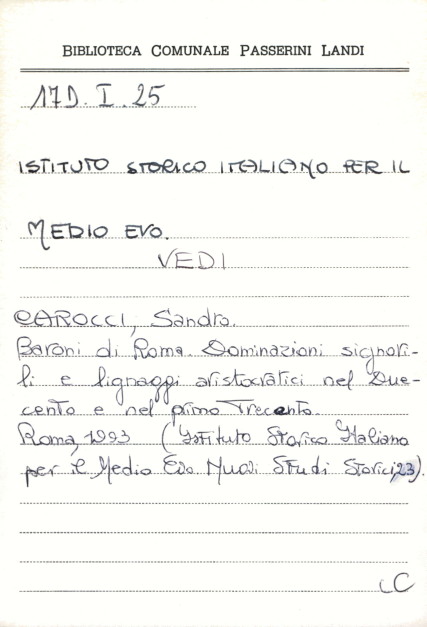 BIBLIOTECA COMUNALE PASSERINI LANDI
17D. I. 25
ISTITUTO STORICO ITALIANO PER IL
MEDIO EVO.
VEDI
CAROCCI, Sandro.
Baroni di Roma. Dominazioni signori-
li e lignaggi aristocratici nel Due-
cento e nel primo Trecento.
Roma, 1993 (Istituto Storico Italiano
per il Medio Evo. Nuovi Studi Storici, 23).
LC